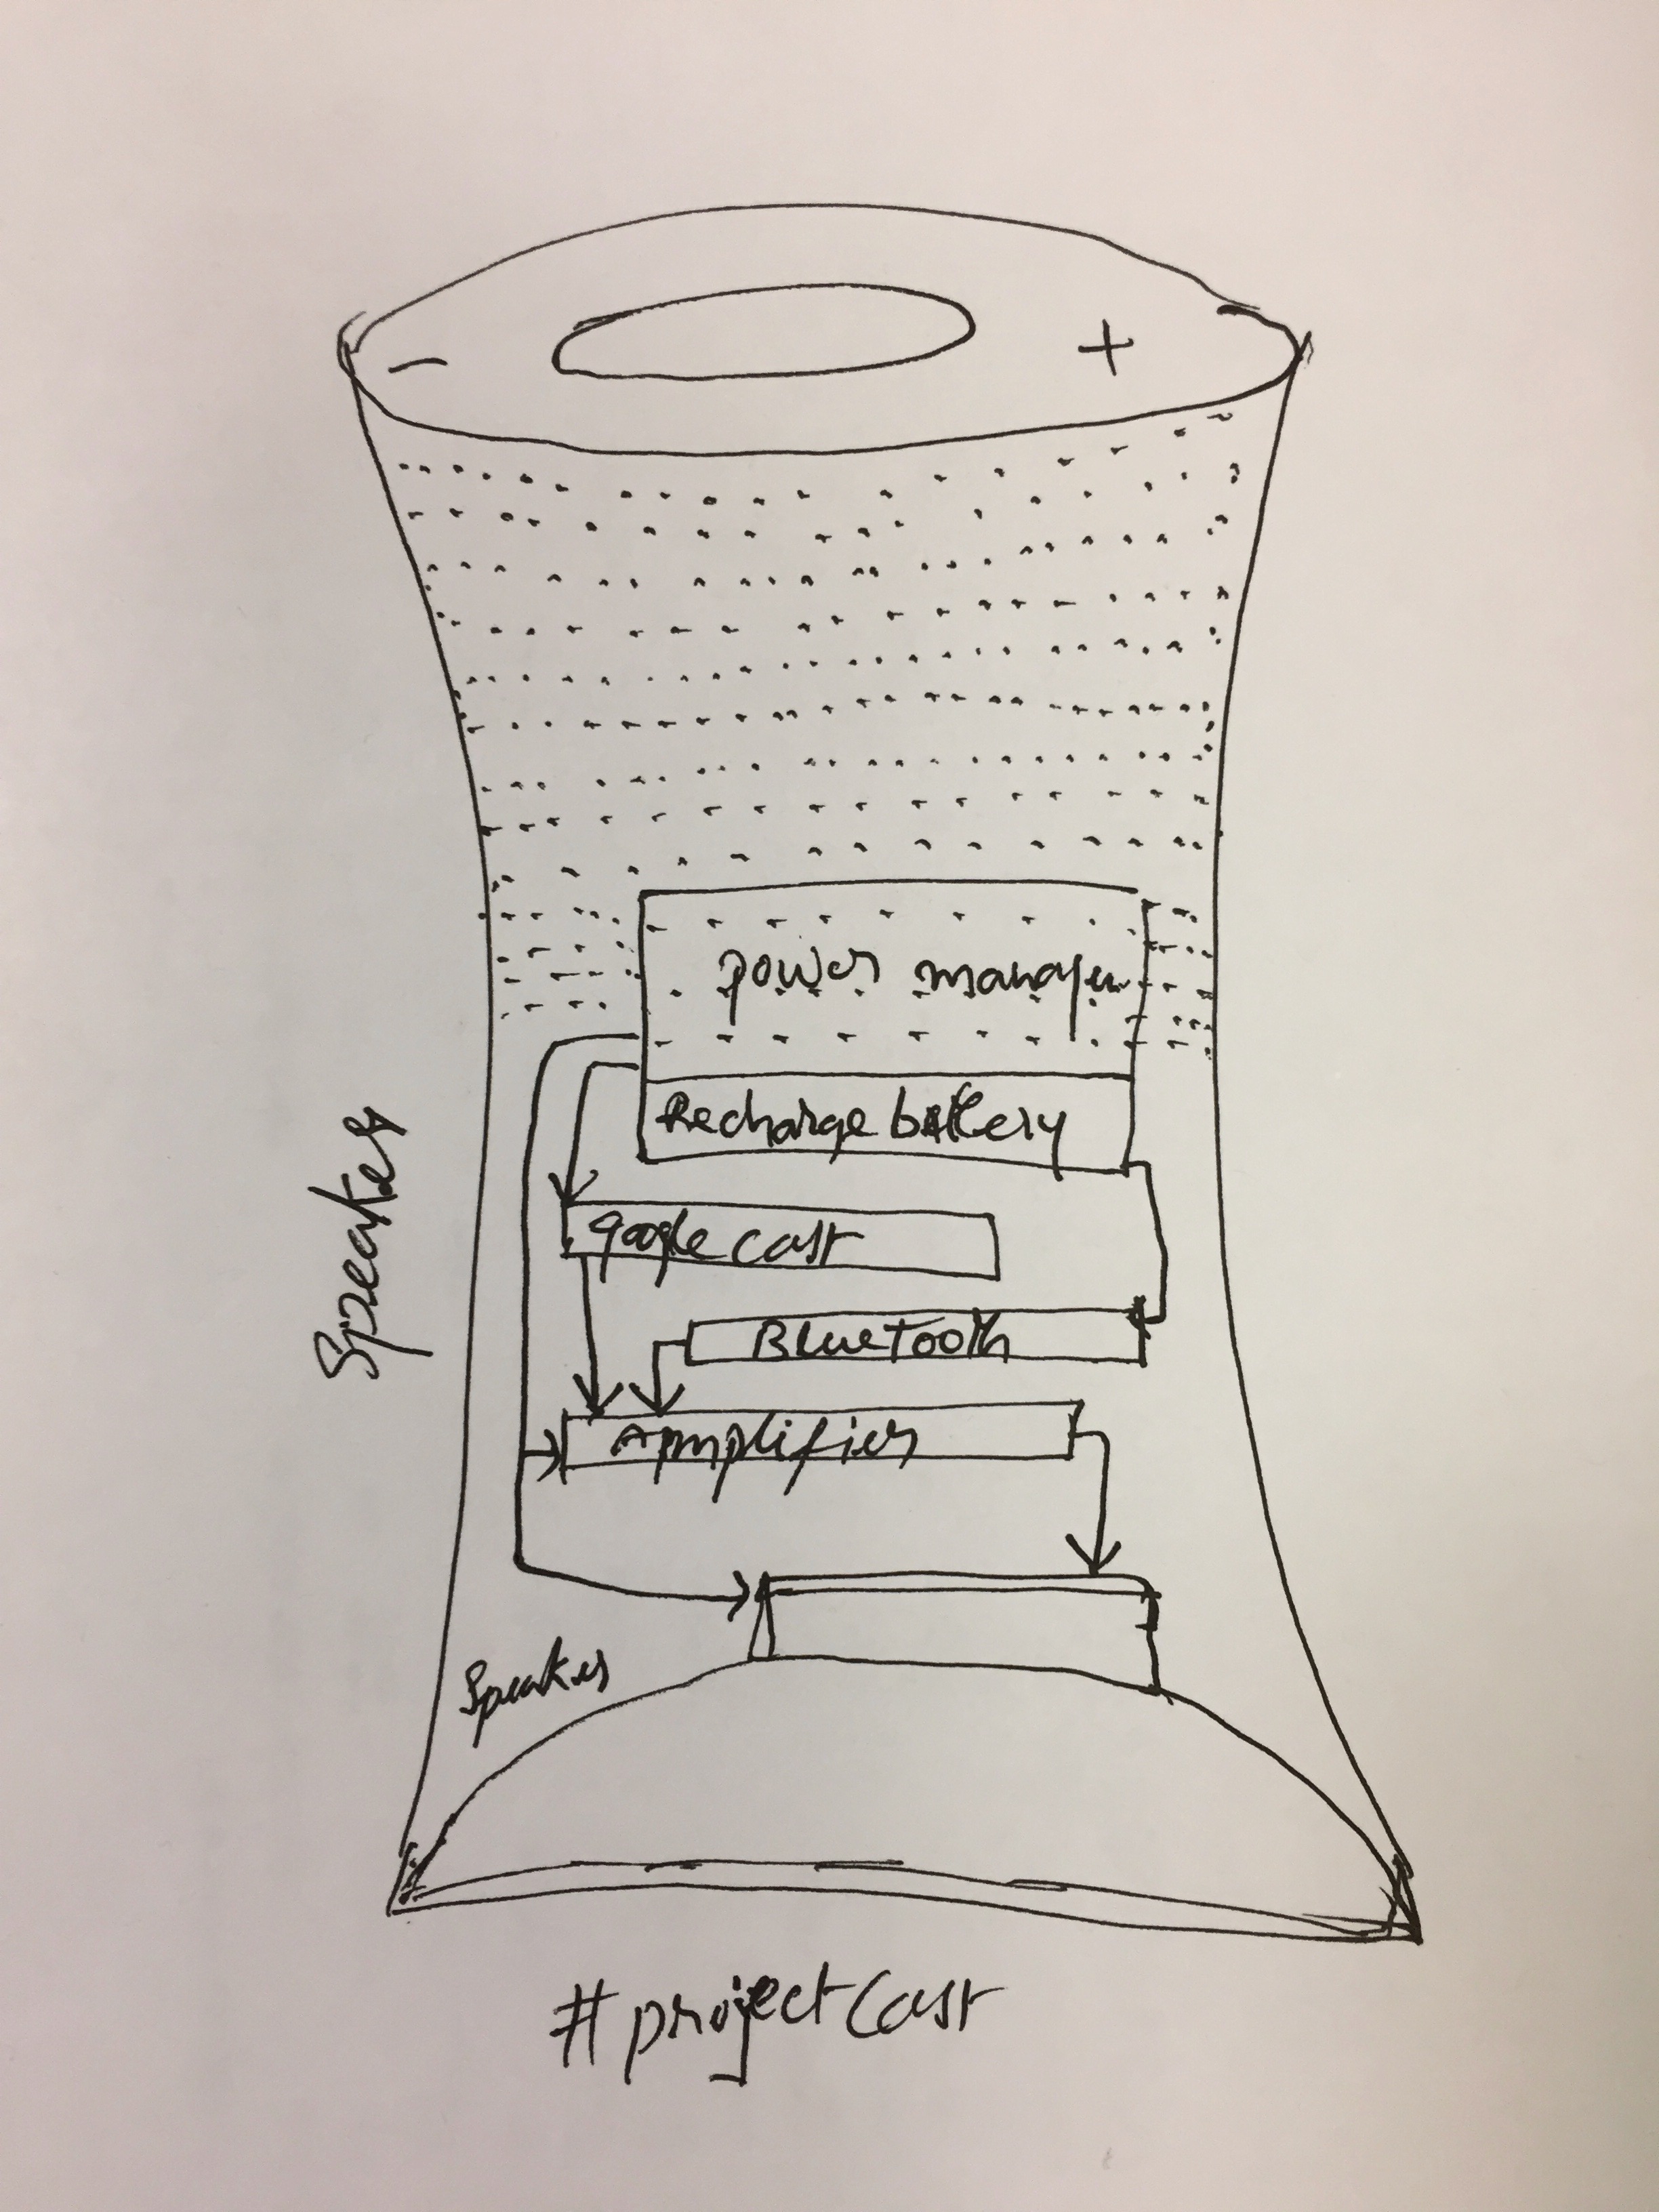 - +
power manager
Recharge battery
google cast
BlueTooth
Apmplifier
Speaker
Speaker
#projectCast